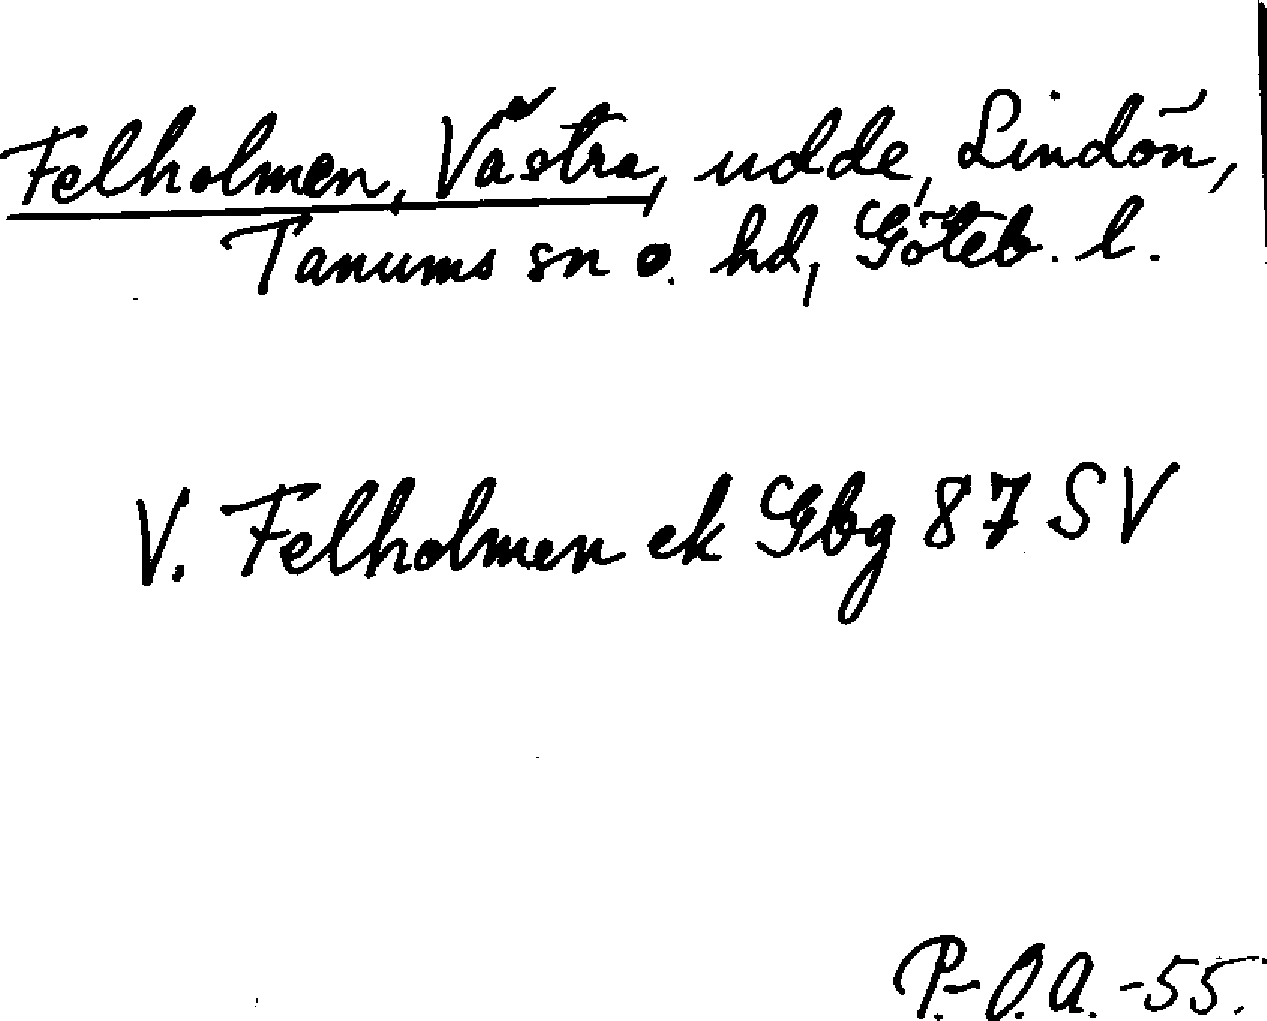 Felholmen, Västra, udde, Lindön,
Tanums sn o. hd, Göteb. l.
V. Felholmen ek Gbg 87 SV
P.-O.A.-55.